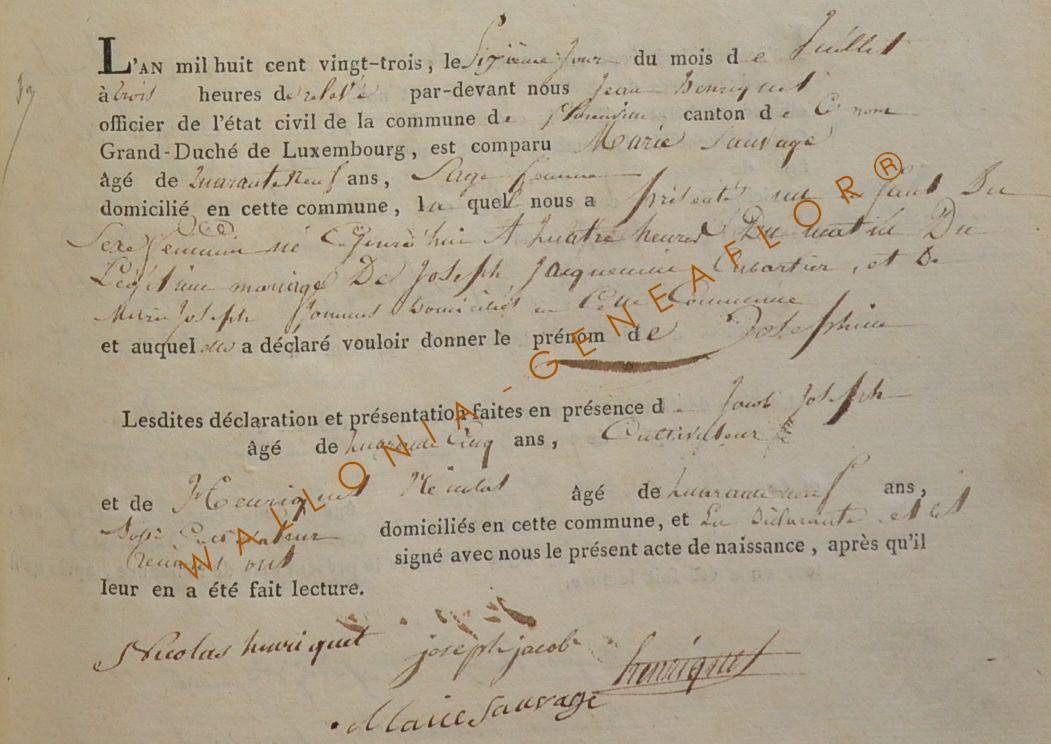 L'AN mil huit cent vingt-trois, le Sixième Jour du mois de Juillet
à trois heures de relevé par-devant nous Jean Henriquet
officier de l'état civil de la commune de canton de
Grand-Duché de Luxembourg, est comparu Marie Sauvage
âgé de quarante neuf ans, Sage femme
domicilié en cette commune, la quel nous a présenté un enfant Du
Sexe feminin né A quatre heures Du matin Du
Légitime mariage De Joseph Jacquemin et De
Marie Joseph Domiciliés en Cette Commune
et auquel elle a déclaré vouloir donner le prénom de Josephine
Lesdites déclaration et présentation faites en présence de Jacob Joseph
âgé de quarante Cinq ans, Cultivateur
et de Henriquet Nicolas âgé de quarante neuf ans,
aussi Cultivateur domiciliés en cette commune, et La Déclarante et les
témoins ont signé avec nous le présent acte de naissance, après qu'il
leur en a été fait lecture.
Nicolas henriquet joseph jacob henriquet
Marie Sauvage
WALLONIA-GENEAFLOR®